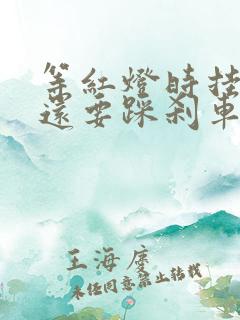 等紅燈時挂
還要踩刹車
王海庭
未经同意禁止转载